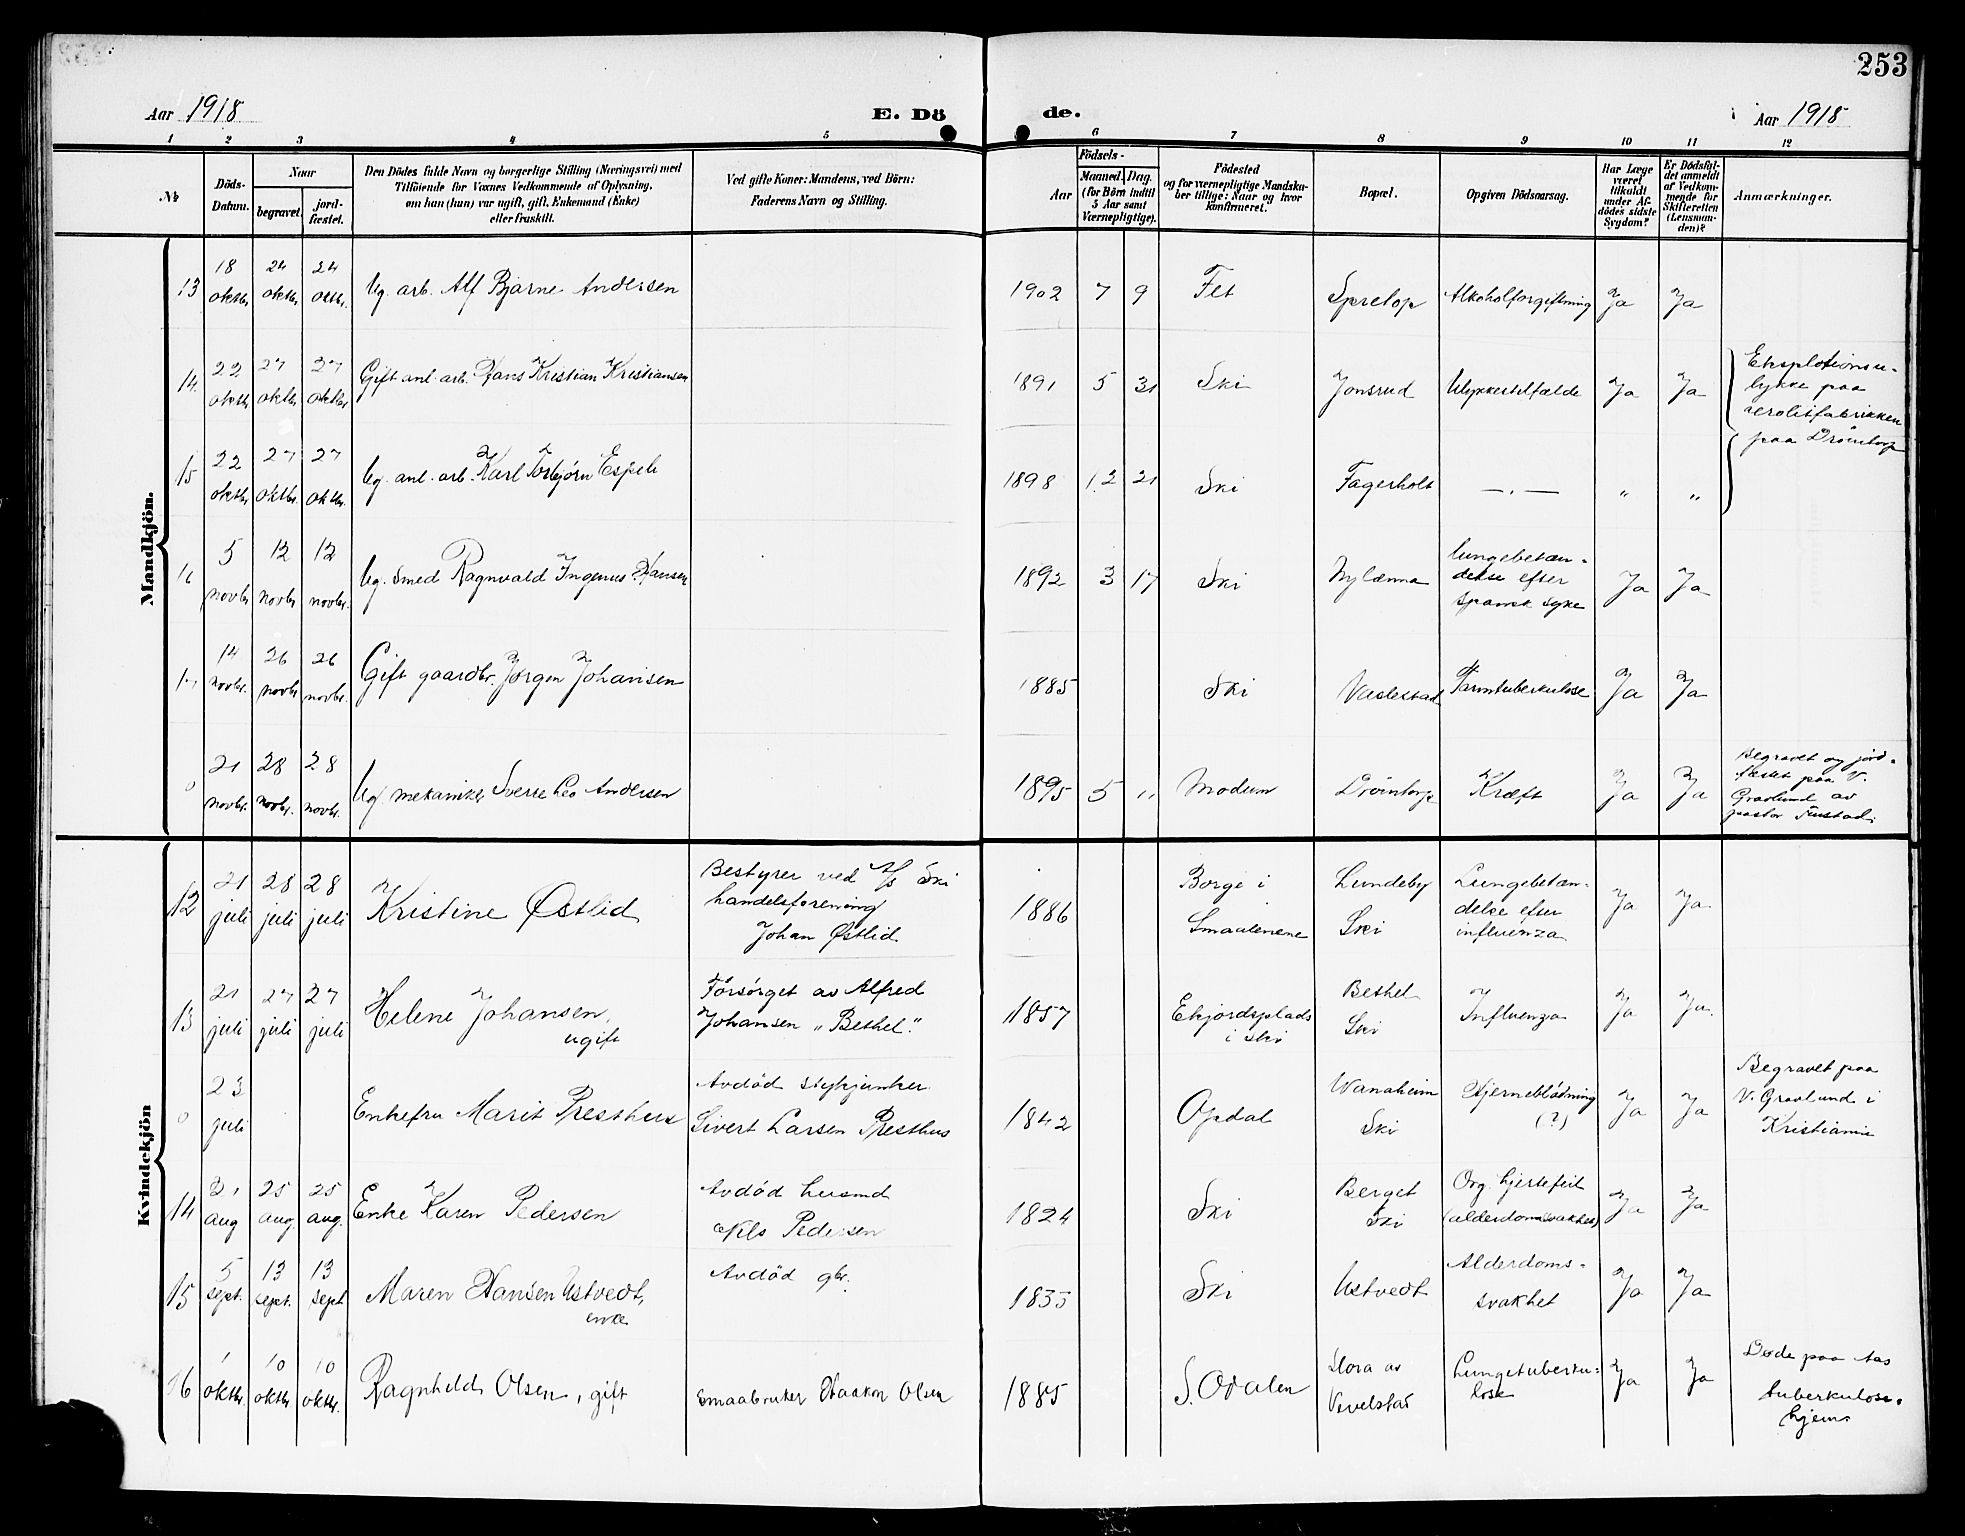 253
Aar 1918
E. Dö
de.
Aar 1918
1 2 3 4 5 6 7 8 9 10 11 12
№
Döds-
Datum.
Naar
begravet.
jord-
fæstet.
Den Dödes fulde Navn og borgerlige Stilling (Næringsvei) med
Tilföiende for Voxnes Vedkommende af Oplysning,
om han (hun) var ugift, gift, Enkemand (Enke)
eller fraskilt.
Ved gifte Koner: Mandens, ved Börn:
Faderens Navn og Stilling.
Födsels-
Aar
Maaned. Dag.
(for Börn indtil
5 Aar samt
Værnepligtige).
Födested
og for værnepligtige Mandska-
ber tillige: Naar og hvor
konfirmeret.
Bopæl.
Opgiven Dödsaarsag.
Har Læge
været
tilkaldt
under Af-
dödes sidste
Sygdom?
Er Dödsfal-
det anmeldt
af Vedkom-
mende for
Skifteretten
(Lensman-
den)?
Anmærkninger.
Mandkjön.
13 18 oktbr. 24 oktbr. 24 oktbr. Ug. arb. Alf Bjarne Andersen 1902 7 9 Fet Spretop Alkoholforgiftning Ja Ja
14. 22 oktbr. 27 oktbr. 27 oktbr. Gift anl. arb. Hans Kristian Kristiansen 1891 5 31 Ski Jonsrud Ulykkestilfælde Ja Ja
Eksplotionsu-
lykke paa
aerolitfabrikken
paa Dröintorp
15 22 oktbr. 27 oktbr. 27 oktbr. Ug. anl. arb. Karl Torbjørn Espeli 1898 12 21 Ski Fagerholt —„— „ „
16 5 novbr. 12 novbr. 12 novbr. Ug. Smed Ragnvald Ingenus Hansen 1892 3 17 Ski Nylænna
Lungebetæn-
delse efter
spansk syke
Ja Ja
17 14 novbr. 26 novbr. 26 novbr. Gift gaardbr. Jørgen Johansen 1885 Ski Vaslestad Tarmtuberkulose Ja Ja
0 21 novbr. 28 novbr. 28 novbr. Ug. mekaniker Sverre Leo Andersen 1895 5 11 Modum Dröintorp Kræft Ja Ja
Begravet og jord-
fæstet paa V.
Gravlund av
pastor
Kvindekjön
12 21 juli 28 juli 28 juli Kristine Østlid
Bestyrer ved A/S Ski
handelsforening
Johan Østlid
1886
Borge i
Smaalenene
Lundeby
Ski
Lungebetæn-
delse efter
influenza
Ja Ja
13 21 juli 27 juli 27 juli Helene Johansen,
ugift
Forsørget av Alfred
Johansen „Bethel".
1857
Ekjordsplads
i Ski
Bethel
Ski
Influenza
Ja Ja.
0 23 juli Enkefru Marit Presthus
Avdød stykjunker
Sivert Larsen Presthus
1842 Opdal
Wanaheim
Ski
Hjerneblødning
(?)
Ja Ja
Begravet paa
V. Gravlund i
Kristiania
14 21 aug 25 aug. 25 aug. Enke Karen Pedersen
Avdød husmd
Nils Pedersen
1824 Ski
Berget
Ski
Org. hjertefeil
(alderdomssvakhet)
Ja Ja
15 5 sept. 13 sept. 13 sept Maren Hansen Ustvedt,
enke
Avdød gbr.
1835 Ski Ustvedt
Alderdoms-
svakhet
Ja Ja
16 1 oktbr. 10 oktbr. 10 oktbr. Ragnhild Olsen, gift
Smaabruker Haakon Olsen
1885 S. Odalen
Mora av
Vevelstad
Lungetuberku-
lose
Ja Ja
Døde paa Aas
tuberkulose-
hjem.